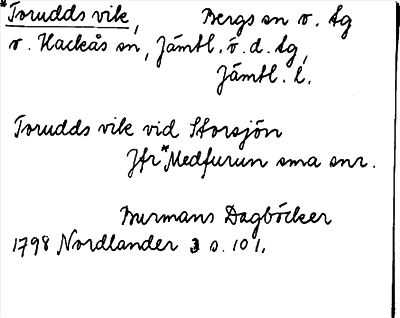 *Torudds vik, Bergs sn o. tg
o. Hackås sn, Jämtl. v. d. tg,
Jämtl. l.
Torudds vik vid Storsjön
Jfr *Medfurun sma snr.
Burmans Dagböcker
1798 Nordlander 3 s. 101.